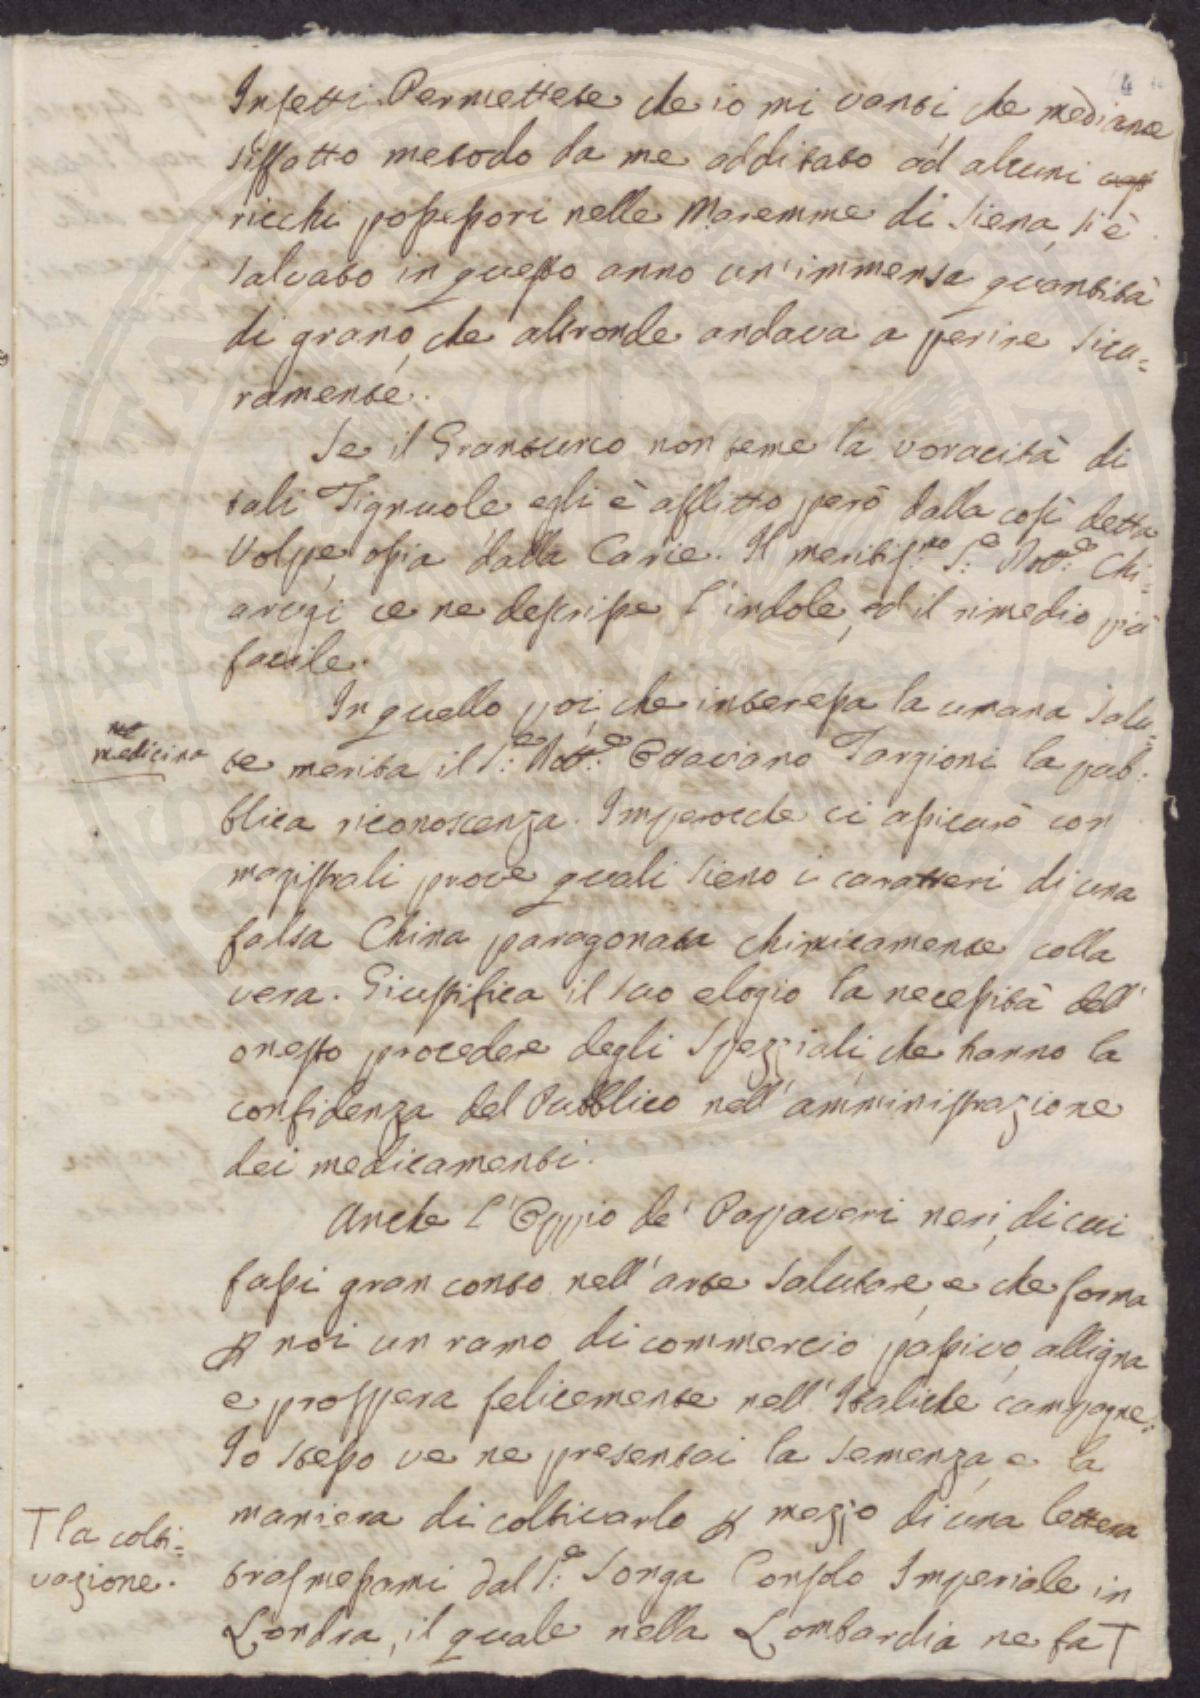 4
Insetti. Permettete che io mi vanti, che mediante
siffatto metodo da me additato ad alcuni
ricchi possessori nelle Maremme di Siena, si è
salvato in questo anno un'immensa quantità
di grano, che altronde andava a perire sicu=
ramente.
Se il Granturco non teme la voracità di
tali Tignuole egli è afflitto però dalla così detta
Volpe, ossia dalla Carie. Il meritiss:mo S:e Dott:e Chi=
arugi ce ne descrisse l'indole, ed il rimedio più
facile.
In quello poi, che interessa la umana salu=
medicina
te merita il S:e Dott:e Ottaviano Targioni la pub=
blica riconoscenza. Imperocchè ci assicurò con
magistrali prove quali sieno i caratteri di una
falsa China paragonata chimicamente colla
vera. Giustifica il suo elogio la necessità dell'
onesto procedere degli Speziali, che hanno la
confidenza del Pubblico nell'amministrazione
dei medicamenti.
Anche l'Oppio de' Papaveri neri, di cui
fassi gran conto nell'arte salutare, e che forma
p noi un ramo di commercio passivo, alligna
e prospera felicemente nell'Italiche campagne.
Io stesso ve ne presentai la semenza, e la
maniera di coltivarlo p mezzo di una lettera
trasmessami dal S:e Songa Consolo Imperiale in
Londra, il quale nella Lombardia ne fa T
T la colti=
vazione.